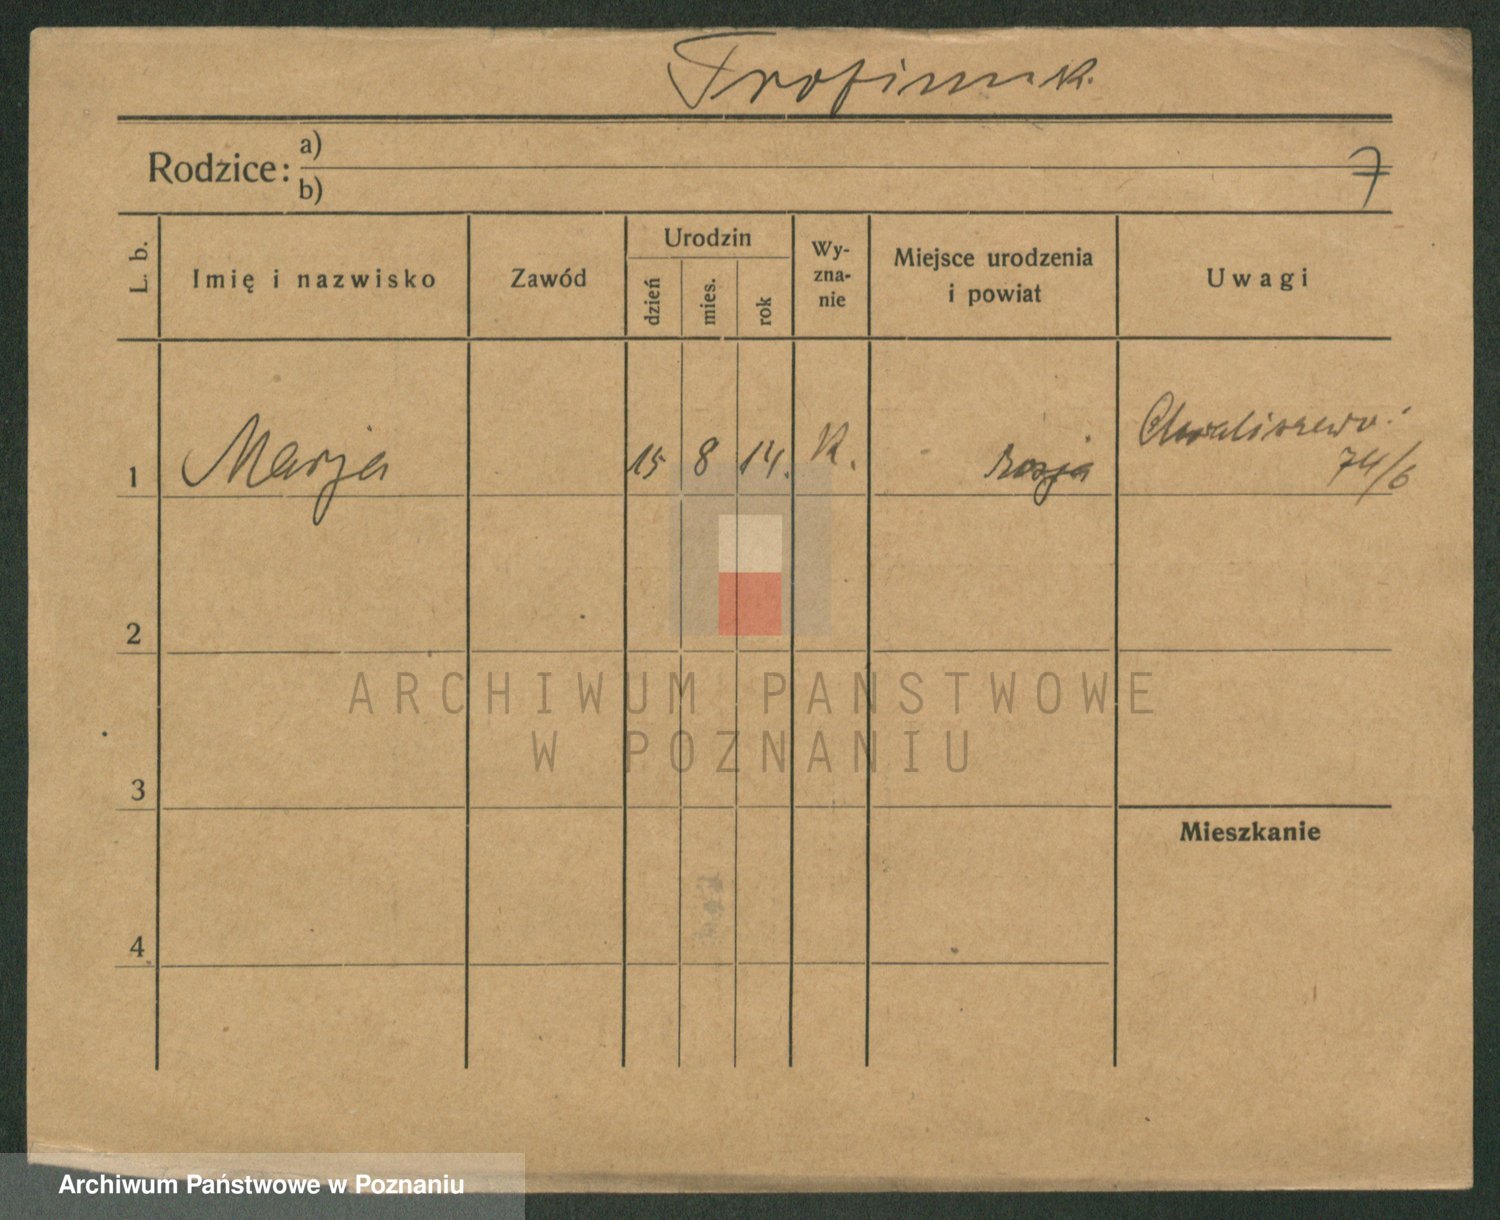 Rodzice: a)
b)
7
L. b.
Imię i nazwisko
Zawód
Urodzin
dzień
mies.
rok
Wy-
zna-
nie
Miejsce urodzenia
i powiat
Uwagi
1 Marja 15 8 14. K. Rosja
Chwaliszewo
74/6
2
3
Mieszkanie
4
ARCHIWUM PAŃSTWOWE
W POZNANIU
Archiwum Państwowe w Poznaniu